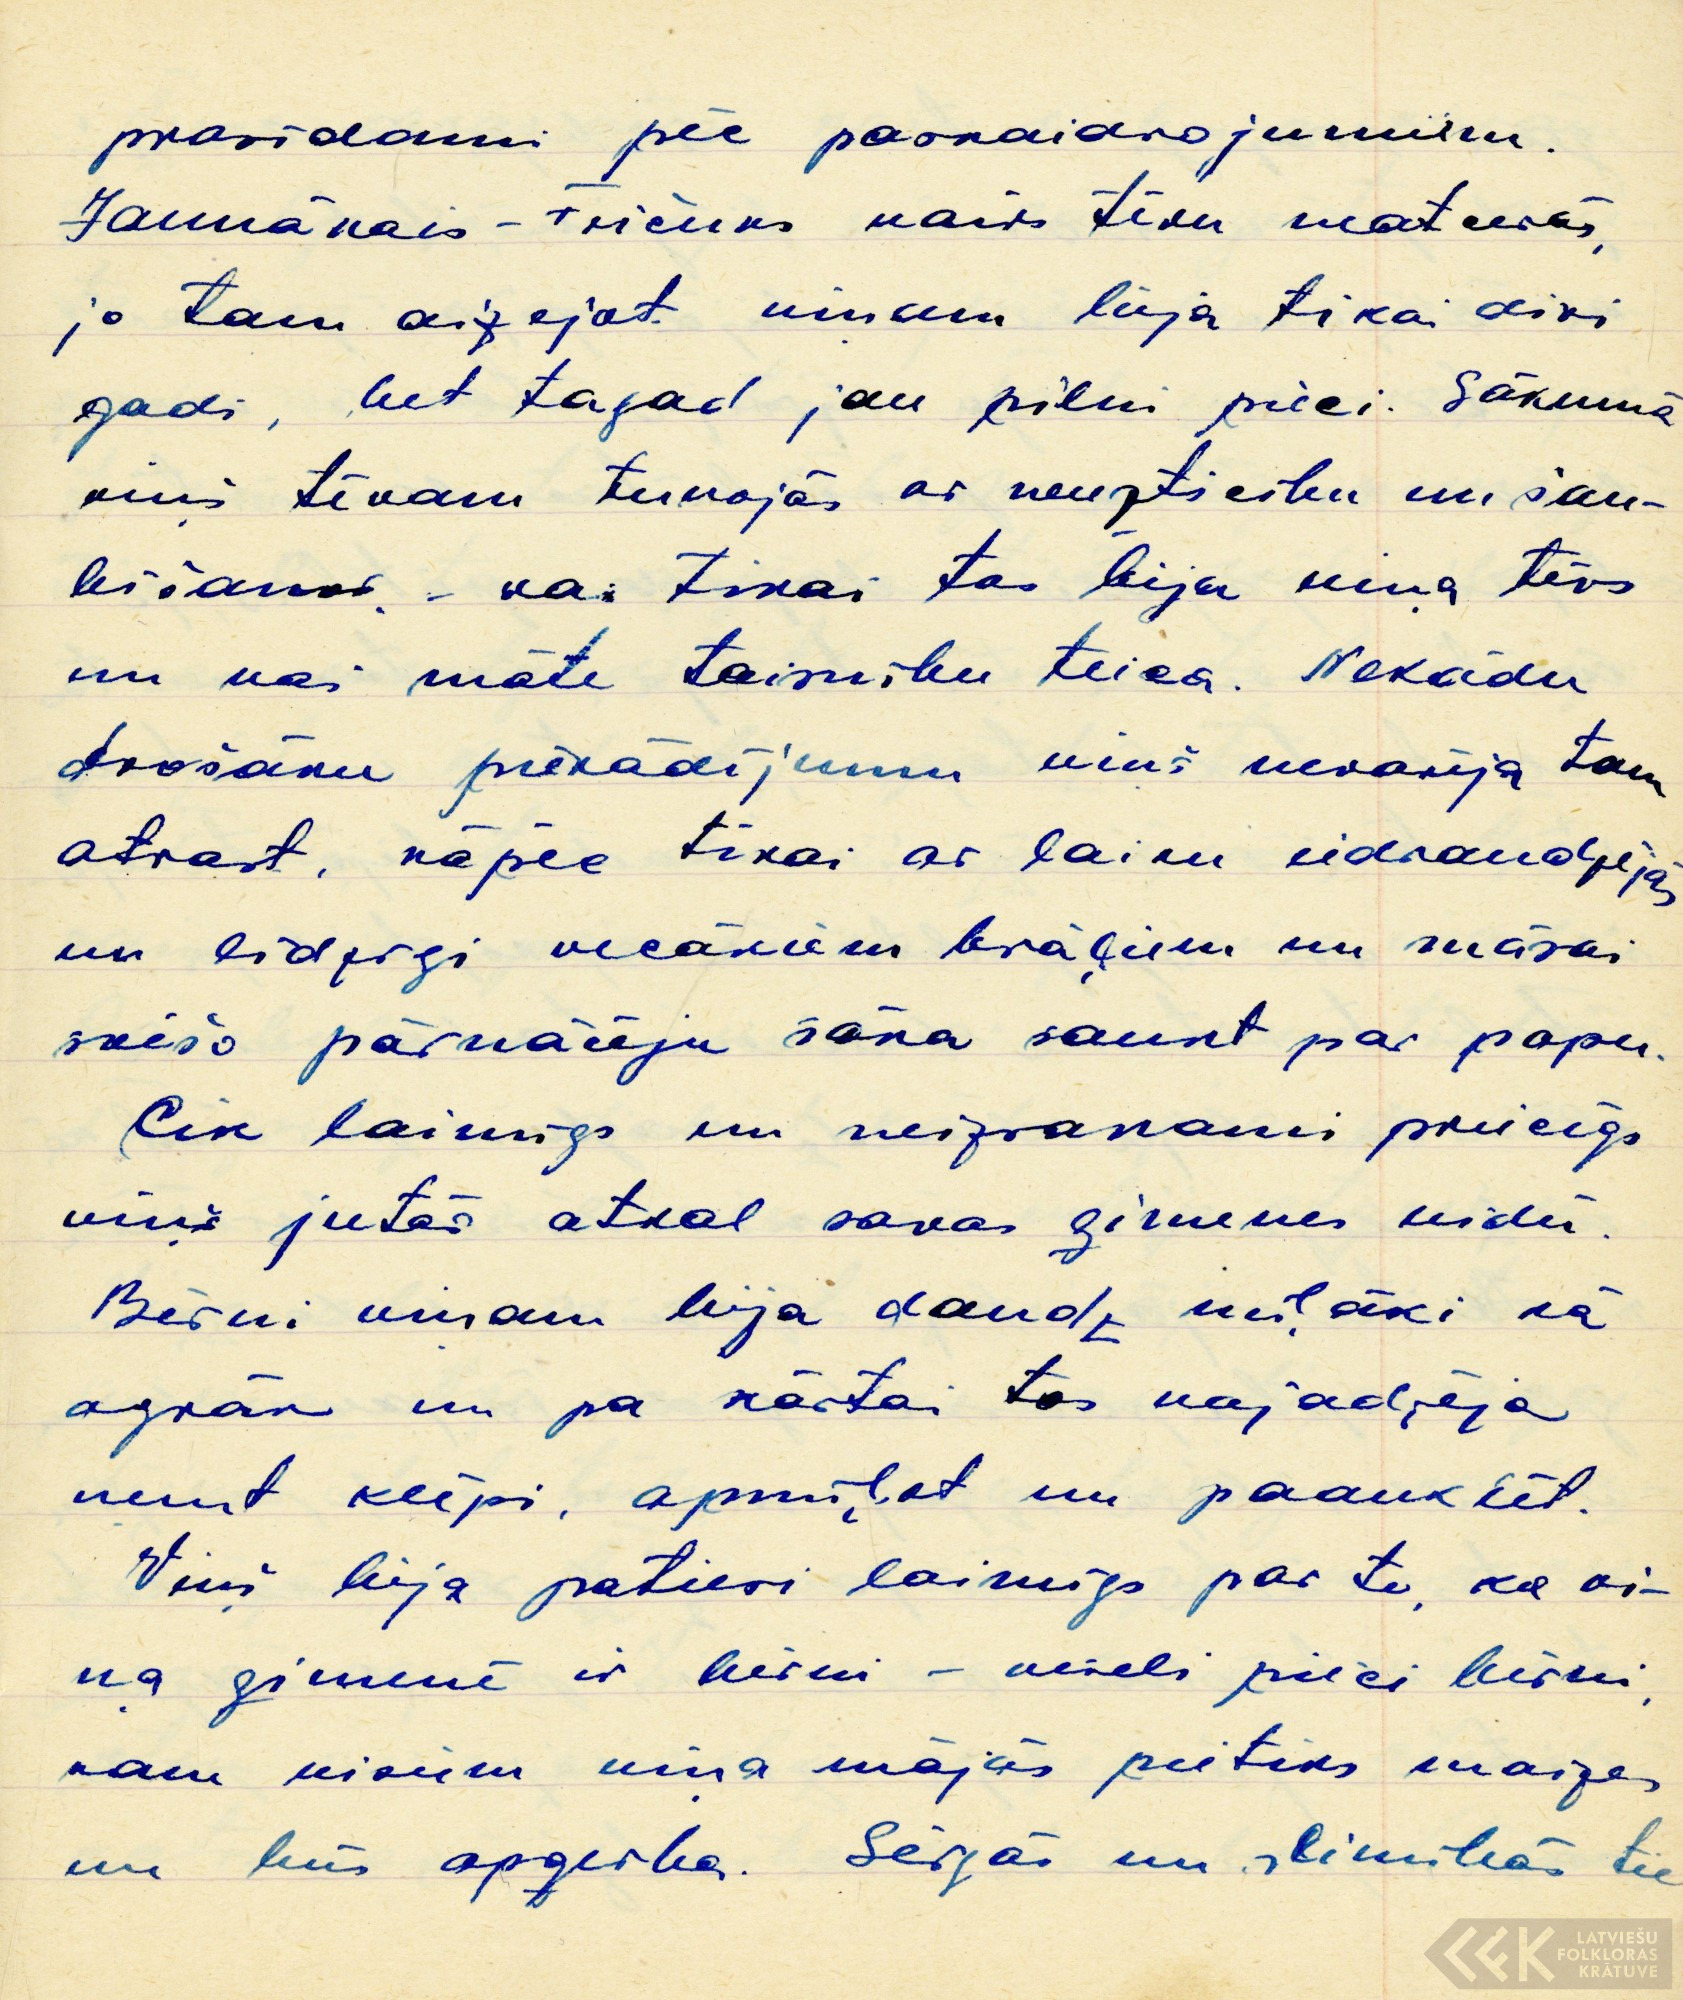 prasīdami pēc paskaidrojumiem.
Jaunākais - Fričuks vairs tēvu neatcerās,
jo tam aizejot viņam bija tikai divi
gadi, bet tagad jau pilni pieci. Sākumā
viņš tēvam tuvojās ar neuzticību un šau-
bīšanos, - vai tikai tas bija viņa tēvs
un vai māte taisnību teica. Nekādu
drošāku pierādījumu viņš nevarēja tam
atrast, kāpēc tikai ar laiku iedraudzējās
un līdzīgi vecākiem brāļiem un māsai
svešo pārnācēju sāka saukt par papu.
Cik laimīgs un neizsakami priecīgs
viņš jutās atkal savas ģimenes vidū.
Bērni viņam bija daudz mīļāki kā
agrāk un pa kārtai tos vajadzēja
ņemt klēpī, apmīļot un paauklēt.
Viņš bija patiesi laimīgs par to, ka vi-
ņa ģimenē ir bērni - veseli pieci bērni,
kam visiem viņa mājās pietiks maizes
un būs apģerba. Sērgās un slimībās tie
LATVIEŠU
FOLKLORAS
KRĀTUVE